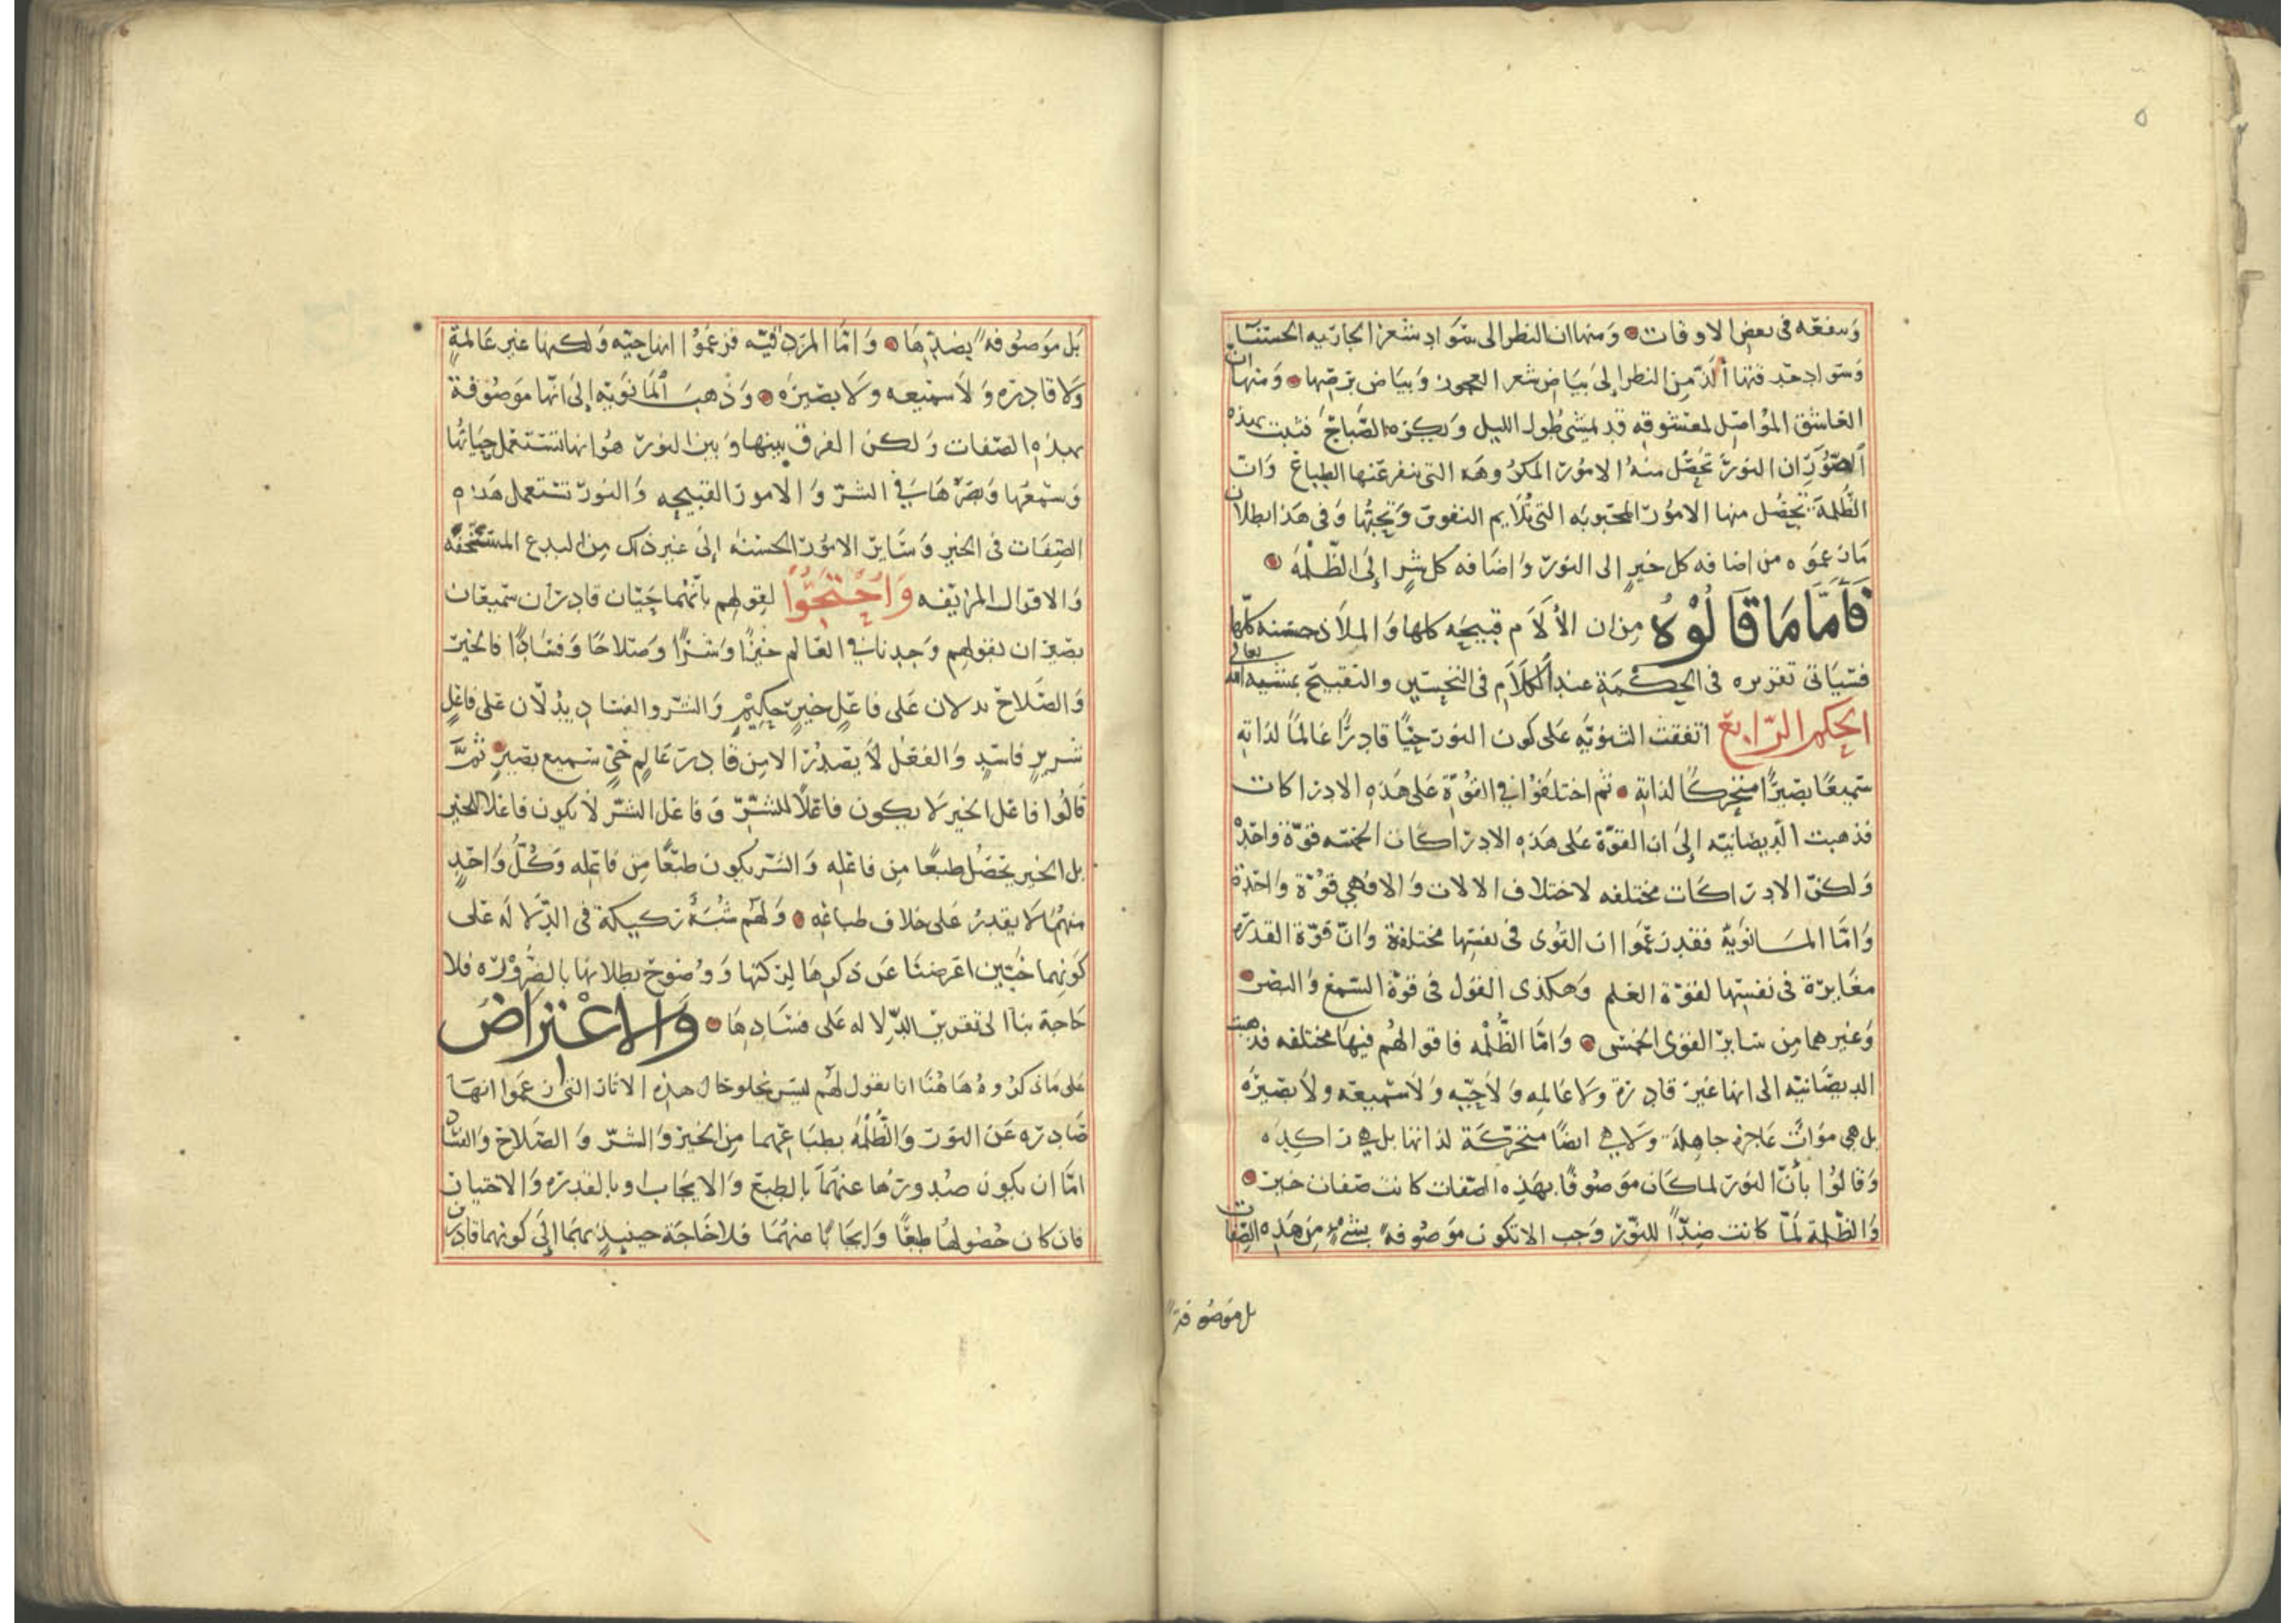 ٥
وتنفعه في بعض الاوقات ومنها ان النظر الى سَوَاد شعر الجاريه الحسنَاء
وَسَوَاد خد فتها ألذّ من النظر إلىَ بيَاض شعر العجوز وَبيَاض برصها وَمنها ان
العَاشق الموَاصِل لمعشوقه قد يمشى طول الليل وَيكره الصَّبَاحَ فثبت بهذه
الصُّوَر ان النورَ تحصُل منهُ الامور المكروهَه التى ينفر عَنها الطبَاع وَان
الظُّلمةَ تحصُل منها الامور المحبوبَه التى تُلايم النفوسَ وَتحبُّها وَفى هَذا بطلان
مَا زعمَوه من اضافه كل خيرٍ الى النور وَاضَافه كل شرٍ إلىَ الظُّلمَه
فَأَمَّا مَا قَالُوْهُ مِن ان الأَلاَم قبيحَه كلها وَالملاذ حسنه كلّها
فسَيَاتى تقريره فى الحكمَةِ عند الكَلاَم فى التحسِين والتقبيح بمشيه الله تعالى
الحكم الرّابع اتفقت الثنويَّه عَلى كون النور حيًّا قادرًا عَالمًا لذاتِه
سَمِيعًا بصيرًا متحركًا لذاتِه ثم اختلَفوْا في القُوّةِ عَلى هَذه الادراكات
فذهبت الديصَانيّه إلىَ ان القوّة عَلى هَذه الادرَاكَات الخمسَه قوّة وَاحدةٌ
وَلكنّ الادرَاكَات مختلفه لاختلاف الالات وَالا فهي قوّة وَاحدَة
وَامَّا المَانوَيّة فقد زعَموا ان القوَى فى نفسِها مختلفة وَانّ قوّة القدرَه
مغَايرَة فى نفسِها لقوّة العلم وَهكذى القوَل فى قوّة السّمع وَالبصَر
وَغيرهما مِن سَاير القوَى الخمس وَامَّا الظُّلمْه فاقوالهُم فيهَا مختلفه فذهبت
الديصَانيّه الى انها غير قادرة وَلا عَالمِه وَلاَ حيّهِ وَلاَ سَميعَه ولاَ بصَيرَه
بل هي موَاتٌ عَاجزة جاهِلة وَلا هي ايضًا متحرّكَة لذاتها بل هي راكِده
وَقالُوا بأنّ النورَ لما كَان موَصوُفًا بهَذِه الصّفات كانت صَفات خير
وَالظّلمة لَمّا كانت ضِدًّا للنّوَر وَجب الا تكون موَصُوفه بشىءٍ مِن هَذِه الصِّفات
بل موَصُوفة
بَل موَصُوفه بضدِّهَا وَامَّا المَزدَقيّه فزعَمُوا انها حيّه وَلكنها غير عَالمةٍ
وَلا قادرَه وَلاَ سَميعَه وَلا بصَيرَه وَذهبَ المَانوَيّه إلىَ انّها موَصُوفة
بهذِه الصّفات وَلكن الفرق بينها وَبين النور هُوَ انها تستعمل حيَاتهَا
وَسَمعهَا وَبصَرهَا في الشرّ وَالامور القبيحِه وَالنورَ تستعمل هَذه
الصّفَات فى الخير وَسَاير الامور الحسَنه إلى غير ذلك مِن البدع المسَتخفّه
وَالاقوَال المزيَفه وَاحْتَجُّوا لقولهم بانّهمَا حَيّان قادرَان سَميعَان
بصَيرَان بقولهم وَجدنا في العَالم خيرًا وَشرًّا وَصَلاحًا وَفسَادًا فالخير
وَالصَّلاح يدلان عَلى فاعَلٍ خيرٍ حكِيْمٍ وَالشر والفسَاد يدُلاّن عَلى فاعَلٍ
شريرٍ فاسَدٍ وَالفعَل لاَ يصَدُر الا مِن قادرَ عَالمٍ حيٍّ سَميع بصَيرٍ ثُمَّ
قالُوا فاعَل الخير لا يكون فاعَلاً للشرِّ وَفاعَل الشرّ لاَ يكون فاعَلا للخير
بل الخير يحصَل طبعًا مِن فاعَله وَالشر يكون طبعًا مِن فاعَله وَكُلُّ وَاحدٍ
منهُمَا لا يقدرُ عَلى خلاف طبَاعِه وَلهُم شُبَهٌ رَكيكة فى الدّلالَه عَلى
كوَنهما حَيّين اعَرضنَا عَن ذكرهَا لِركتها وَوضُوح بطلانها بالضَّرُوْرَه فلا
حَاجة بنا الى تقرير الدّلاله عَلى فسَادِهَا وَالاعْتراضُ
عَلى مَا ذكروهُ هَاهُنَا انا نقول لهُم ليسَ يخلو حَال هذِه الاثار التى زعَموا انهَا
صَادرَه عَن النوَر وَالظُّلمْهُ بطبَاعِهما مِن الخير وَالشرّ وَالصَّلاح وَالفسَاد
امَّا ان يكون صدورهَا عنهمَا بالطبع وَالايجَاب او بالقدرَه وَالاختيار
فان كان حُصُولها طبعًا وَايجَابًا منهمَا فلا حَاجَة حينيذٍ بهمَا إلىَ كونهما قادرَين